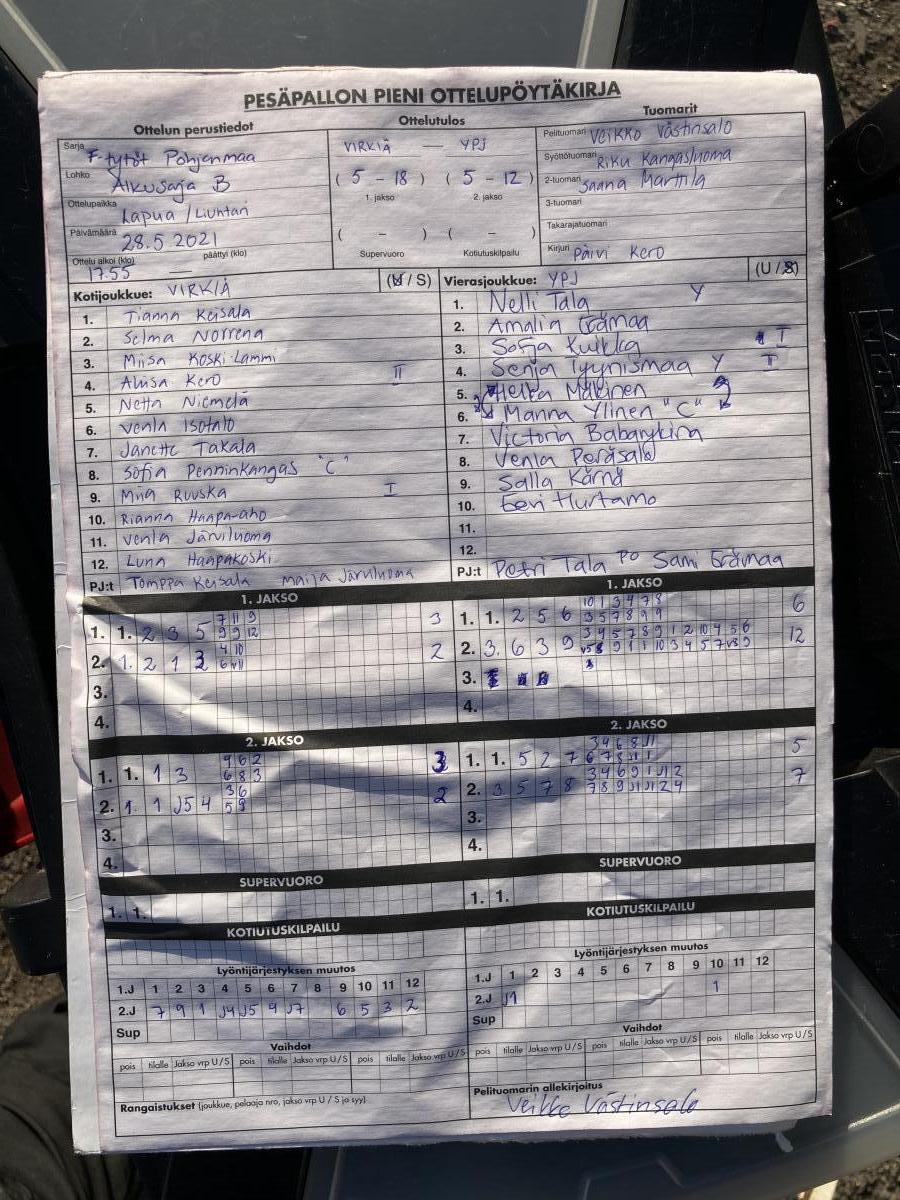 PESÄPALLON PIENI OTTELUPÖYTÄKIRJA
Ottelun perustiedot
Sarja F-tytöt Pohjanmaa
Lohko Alkusarja B
Ottelupaikka Lapua / Liuhtari
Päivämäärä 28.5 2021
Ottelu alkoi (klo) päättyi (klo)
17.55 —
Ottelutulos
VIRKIÄ — YPJ
( 5 - 18 ) ( 5 - 12 )
1. jakso 2. jakso
( - ) ( - )
Supervuoro Kotiutuskilpailu
Tuomarit
Pelituomari Veikko Västinsalo
Syöttötuomari Riku Kangasluoma
2-tuomari Jaana Marttila
3-tuomari
Takarajatuomari
Kirjuri Päivi Kero
Kotijoukkue: VIRKIÄ (U / S)
1. Tianna Keisala
2. Selma Norrena
3. Miisa Koski-Lammi
4. Aliisa Kero II
5. Netta Niemelä
6. Venla Isotalo
7. Janette Takala
8. Sofia Penninkangas "C"
9. Miia Ruuska I
10. Rianna Haapa-aho
11. Venla Järviluoma
12. Luna Haapakoski
PJ:t Tomppa Keisala Maija Järviluoma
Vierasjoukkue: YPJ (U / S)
1. Nelli Tala Y
2. Amalia Erämaa
3. Sofja Kuikka I
4. Senja Tyynismaa Y I
5. Helka Mäkinen
6. Manna Ylinen "C"
7. Victoria Babarykina
8. Venla Peräsalo
9. Salla Kärnä
10. Eevi Hurtamo
11.
12.
PJ:t Petri Tala PO Sami Erämaa
1. JAKSO
7 11 9
1. 1. 2 3 5 9 9 12 3
4 10
2. 1. 2 1 3 6 V11 2
3.
4.
1. JAKSO
10 1 3 4 7 8
1. 1. 2 5 6 3 5 7 8 9 9 6
3 4 5 7 8 9 1 2 10 4 5 6
2. 3. 6 3 9 V5 8 9 1 1 10 3 4 5 7 V8 9 12
3.
4.
2. JAKSO
9 6 2
1. 1. 1 3 6 8 3 3
3 6
2. 1. 1 J5 4 5 9 2
3.
4.
2. JAKSO
3 4 6 8 J1
1. 1. 5 2 7 6 7 8 J1 1 5
3 4 6 9 1 J1 2
2. 3 5 7 8 7 8 9 J1 J1 2 4 7
3.
4.
SUPERVUORO
1. 1.
SUPERVUORO
1. 1.
KOTIUTUSKILPAILU
KOTIUTUSKILPAILU
Lyöntijärjestyksen muutos
1.J 1 2 3 4 5 6 7 8 9 10 11 12
2.J 7 9 1 J4 J5 9 J7 6 5 3 2
Sup
Lyöntijärjestyksen muutos
1.J 1 2 3 4 5 6 7 8 9 10 11 12
2.J J1 1
Sup
Vaihdot
pois tilalle Jakso vrp U / S pois tilalle Jakso vrp U / S pois tilalle Jakso vrp U / S
Vaihdot
pois tilalle Jakso vrp U / S pois tilalle Jakso vrp U / S pois tilalle Jakso vrp U / S
Rangaistukset (joukkue, pelaaja nro, jakso vrp U / S ja syy)
Pelituomarin allekirjoitus
Veikko Västinsalo